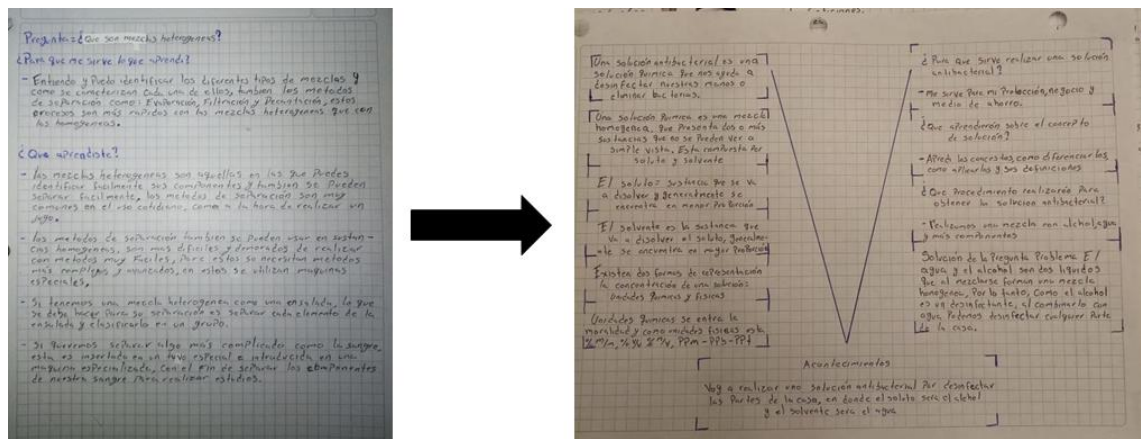 Pregunta: ¿Que son mezclas heterogeneas?
¿Para que me sirve lo que aprendi?
- Entiendo y Puedo identificar los diferentes tipos de mezclas y
como se caracterizan cada una de ellas, tambien los metodos
de separación como: Evaporación, Filtración y Decantación, estos
procesos son más rapidos con las mezclas heterogeneas que con
las homogeneas.
¿Que aprendiste?
- las mezclas heterogeneas son aquellas en las que Puedes
identificar facilmente sus componentes y tambien se Pueden
separar facilmente, los metodos de separación son muy
comunes en el uso cotidiano, como a la hora de realizar un
jugo.
- los metodos de separación tambien se pueden usar en sustan-
cias homogeneas, son mas dificiles y demorados de realizar
con metodos muy Faciles, Para estos se necesitan metodos
más complejos y avanzados, en estos se utilizan maquinas
especiales.
- Si tenemos una mezcla heterogenea como una ensalada, lo que
se debe hacer Para su separación es separar cada elemento de la
ensalada y clasificarlo en un grupo.
- Si queremos separar algo más complicado como la sangre,
esta es insertada en un tuvo especial e introducida en una
maquina especializada, con el fin de separar los componentes
de nuestra sangre Para realizar estudios.
Una solución antibacterial es una
solución Quimica que nos ayuda a
desinfectar nuestras manos o
eliminar bacterias.
Una solución Quimica es una mezcla
homogenea, que Presenta dos o más
sustancias que no se Pueden ver a
simple vista. Esta compuesta Por
soluto y solvente
El soluto= sustancia que se va
a disolver y generalmente se
encuentra en menor Proporción
El solvente es la sustancia que
va a disolver el soluto, generalme-
nte se encuentra en mayor Proporción
Existen dos formas de representación
la concentración de una solución:
Unidades Quimicas y fisicas
Unidades Quimicas se entra la
moralidad y como unidades fisicas esta
% m/m, % v/v % m/v, PPm - PPb - PPt
¿Para que sirve realizar una solución
antibacterial?
- Me sirve Para mi Protección, negocio y
medio de ahorro.
¿Que aprendieron sobre el concepto
de solución?
- Aprendi los conceptos, como diferenciarlos,
como aplicarlos y sus definiciones
¿Que Procedimiento realizaron Para
obtener la solucion antibacterial?
- Realizamos una mezcla con alcohol, agua
y más componentes
Solución de la Pregunta Problema El
agua y el alcohol son dos liquidos
que al mezclarse forman una mezcla
homogenea, Por lo tanto, Como el alcohol
es un desinfectante, al combinarlo con
agua, Podemos desinfectar cualquier Parte
de la casa.
Acontecimientos
Voy a realizar una solución antibacterial Par desinfectar
las Partes de la casa, en donde el soluto será el alcohol
y el solvente será el agua